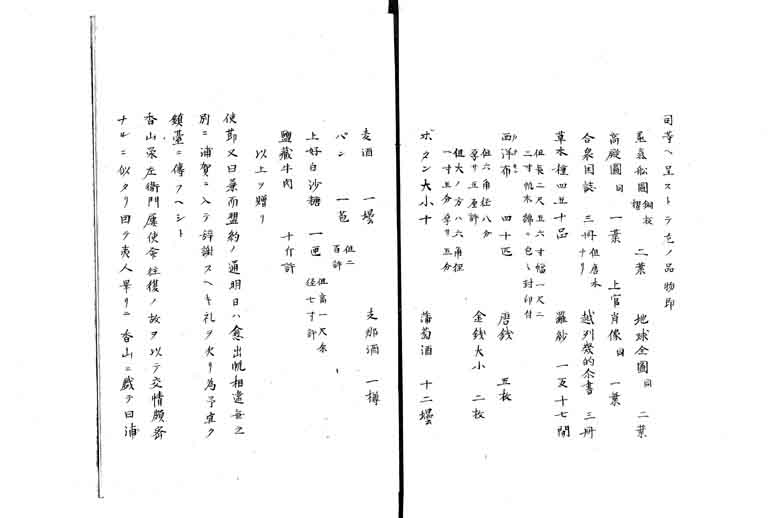 司等ヘ呈ストテ左ノ品物即
蒸気船図 銅板摺 二葉 地球全図 同 二葉
高殿図 同 一葉 上官肖像 同 一葉
合衆国誌 三冊 但唐本ナリ 越列幾的尓書 三冊
草木種四五十品 羅紗 一反十七間
但長二尺五六寸幅一尺二
二寸帆木綿ニ包ミ封印付
西洋布 四十疋 唐銭 五枚
但六角径八分
厚サ五厘許 金銭大小 二枚
但大ノ方八六角径
一寸五分厚サ五分
ボタン大小十 葡萄酒 十二壜
麦酒 一壜 支那酒 一樽
パン 一苞 但二百許
上好白沙糖 一匣 但高一尺余径七寸許
塩蔵牛肉 十斤許
以上ヲ贈リ
使節又曰兼而盟約ノ通明日ハ愈出帆相違無之
別ニ浦賀ニ入テ辞謝スヘキ礼ヲ欠リ為予宜ク
鎮台ニ傳フヘシト
香山栄左衛門屢使命往復ノ故ヲ以テ交情頗密
ナルニ似タリ因テ夷人畢リニ香山ニ戯テ曰浦